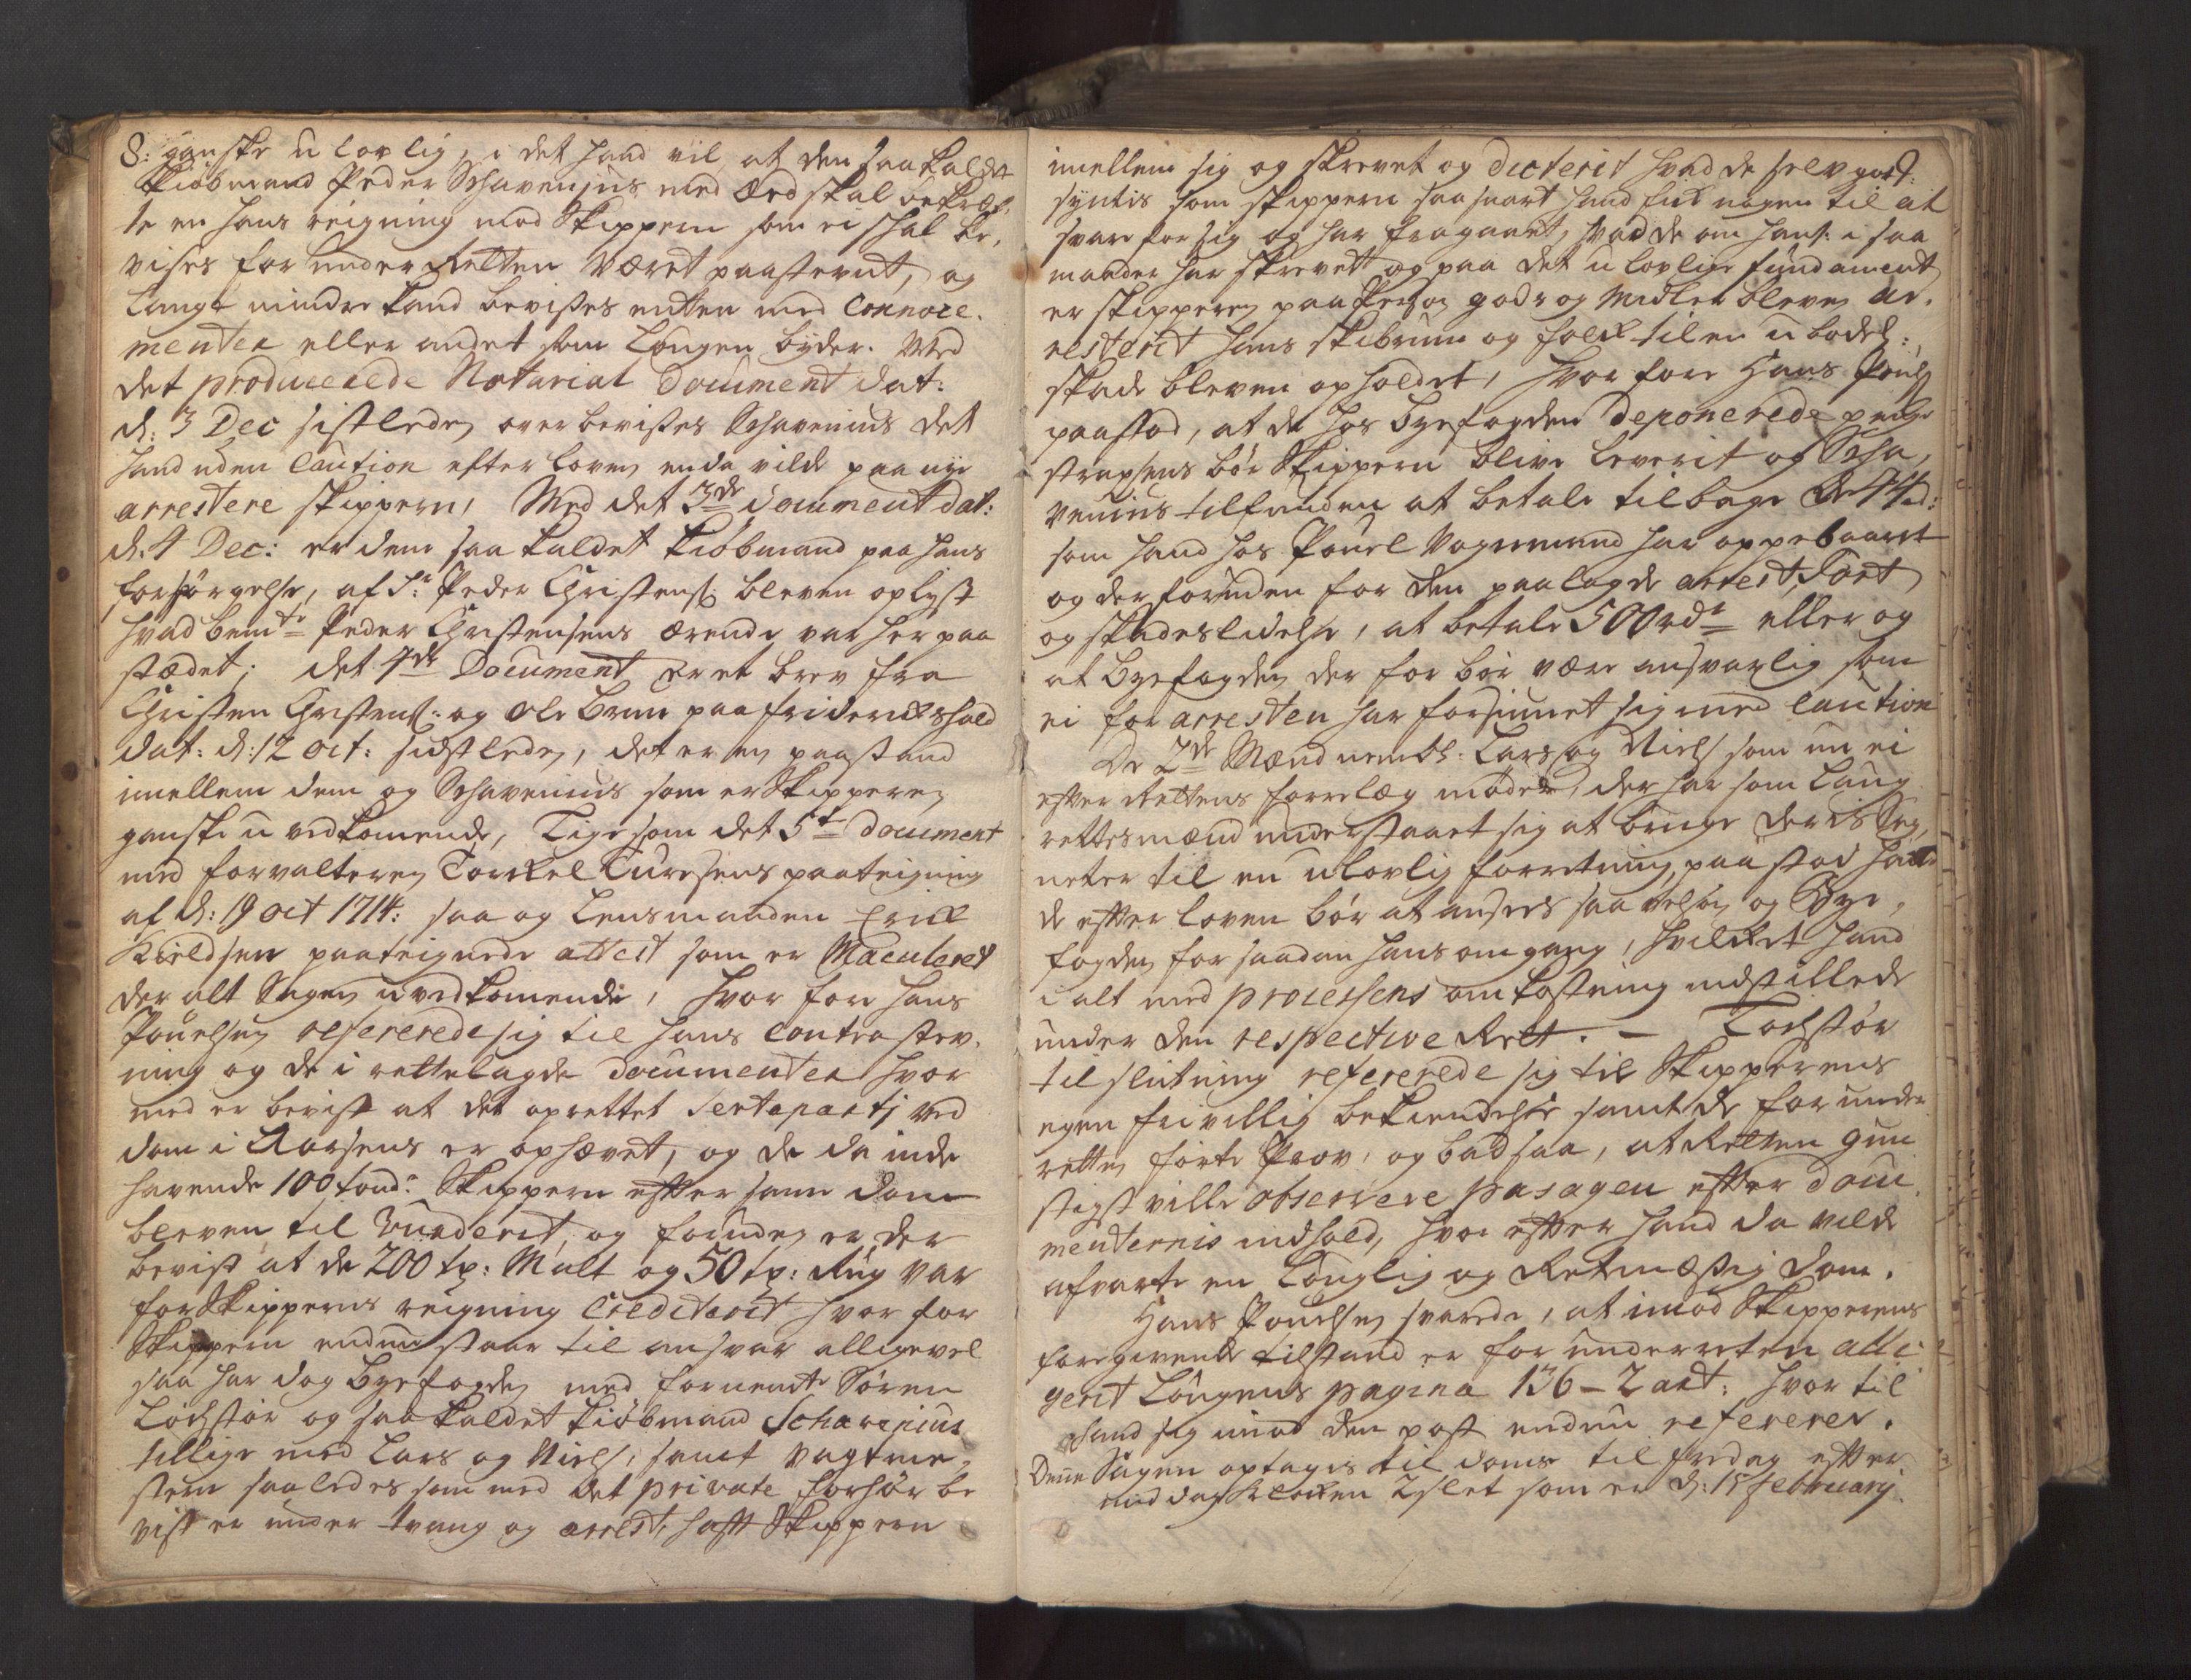 8: ganske u lovlig, i det hand vil at den saa kaldet
Kiøbmand Peder Schavenius med Æed skal bekræf,
te en hans reigning mod Skippern som ei skal be,
vises for under Retten været paastevnt, og
langt mindre kand bevises enten med Connoce.
menter eller andet som Lougen byder. Med
det producerede Notarial Document dat:
d: 3 Dec sistleden overbevises Schavenius det
hand uden Caution efter loven enda vilde paa nye
arrestere skippern, Med det 3de document dat:
d: 4 Dec: er denn saa kaldet kiøbmand paa hans
forspørgelse, af Sr Peder Christens: bleven oplyst
hvad bemte Peder Christensens ærende var her paa
stædet; det 4de Document er et brev fra
Christen Christens: og Ole Brun paa Friderikshald
dat: d: 12 oct: sidstleden, det er en paastand
imellem dem og Schavenius som er Skipperen
ganske u vedkomende, Lige som det 5te document
med forvalteren Torkel Turesens paateigning
af d: 19 oct 1714: saa og Lensmanden Erik
Kieldsen paateignede attest som er Maculeret
der alt Sagen uvedkomende, hvor fore Hans
Pouelsen refererede sig til hans contra stev,
ning og de i rettelagde documenter hvor
med er bevist at det oprettet Sertepartj ved
dom i Aarsens er ophævet, og de da inde
havende 100 tønd: Skippern efter samme dom
bleven til Vurderet, og foruden er der
bevist at de 200 tp: Malt og 50 tp: Rug var
for Skipperns reigning Crediterit hvor for
Skippern endnu staar til ansvar alligevel
saa har dog byefogden med fornemte Søren
Lochstør og saa kaldet kiøbmand Schavenius
tillige med Lars og Niels, samt vagtme,
stern saaledes som med det private forhør be
vist er under tvang og arrest, haft Skippern
imellem sig og skrevet og dicterit hvad de selv godt
syntis som skippern saa snart hand fik nogen til at
svare for sig og har fragaaet, hvad de om hans i saa
maader har skrevet og paa det u lovlige fundament
er skipperen paa Person gods og Midler bleven ar.
resterit hans skibrum og folk til en u bodel:
skade bleven opholdet, hvor fore Hans Pouls
paastod, at de hos byefogden deponerede penge
strax sens bør Skippern blive leverit og Scha,
venius tilfunden at betale tilbage de 44 d:
som hand hos Pouel Vognmand har oppebaaret
og der foruden for den paalagde arrest, Tort
og skadeslidelse, at betale 500 rdr eller og
at byefogden der for bør være ansvarlig som
ei for arresten har forsiunet sig med caution
De 2de Mænd nembl. Lars og Niels som nu ei
efter Rettens forrelæg møder, der har som laug
rettesmænd understaaet sig at bruge deris Sig,
neter til en ulovlig forretning, paastod hand
de efter loven bør at ansees saa velsom og bye,
fogden for saadan hans omgang, hvilket hand
i alt med processens omkostning indstillede
under den respective Rett. – Lochstør
til slutning refererede sig til Skipperens
egen frivillig bekiendelse samt de for under
retten førte Prov, og bad saa, at Retten gun
stigst ville observere pasagen efter docu
menternis indhold, hvor efter hand da vilde
afvarte en Louglig og Retmæssig dom.
Hans Pouelsen svarede, at imod Skipperens
foregivende tilstand er for underretten alle
gerit Lougens pagina 136 – 2 art: hvor til
hand sig imod den post endnu refererer.
Denne Sagen optages til doms til fredag efter
mid dag klocken 2 slet som er d: 15 february.